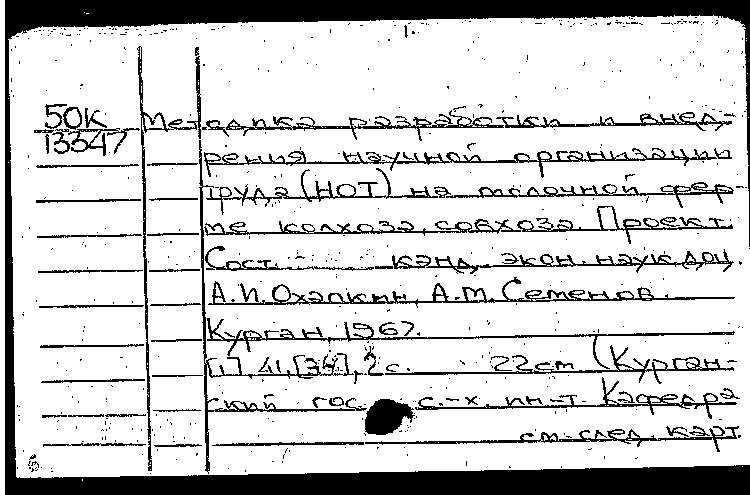 1.
50К Методика разработки и внед-
13347 рения научной организации
труда (НОТ) на молочной фер-
ме колхоза, совхоза. Проект.
Сост. канд. экон. наук, доц.
А.И. Охапкин, А.М. Семенов.
Курган, 1967.
[1], 41, [34], 2 с. 22 см (Курган-
ский гос. с.-х. ин-т. Кафедра
см. след. карт.